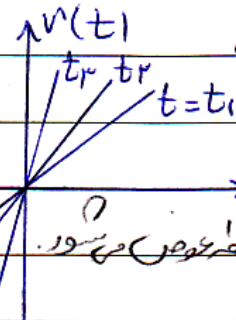 v(t)
t۳ t۲
t = t۱
عوض می شود.